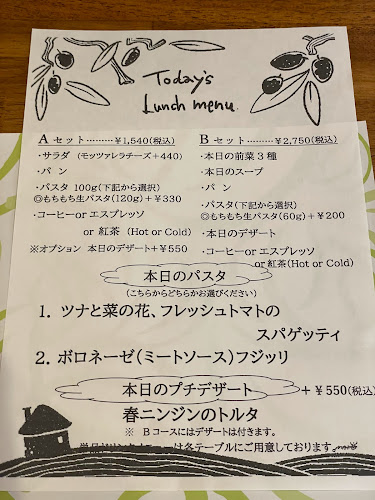 Today's
Lunch menu
Aセット………￥1,540(税込)
・サラダ (モッツァレラチーズ+440)
・パン
・パスタ 100g(下記から選択)
◎もちもち生パスタ(120g)+￥330
・コーヒーor エスプレッソ
or 紅茶 (Hot or Cold)
※オプション 本日のデザート+￥550
Bセット………￥2,750(税込)
・本日の前菜3種
・本日のスープ
・パン
・パスタ(下記から選択)
◎もちもち生パスタ(60g)+￥200
・本日のデザート
・コーヒーor エスプレッソ
or 紅茶(Hot or Cold)
本日のパスタ
(こちらからどちらかお選びください)
1. ツナと菜の花、フレッシュトマトの
スパゲッティ
2. ボロネーゼ(ミートソース)フジッリ
本日のプチデザート +￥550(税込)
春ニンジンのトルタ
※ Bコースにはデザートは付きます。
は各テーブルにご用意しております